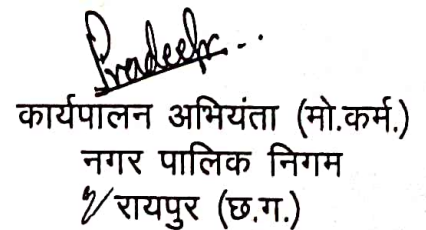 Pradeep
कार्यपालन अभियंता (मो.कर्म.)
नगर पालिक निगम
रायपुर (छ.ग.)